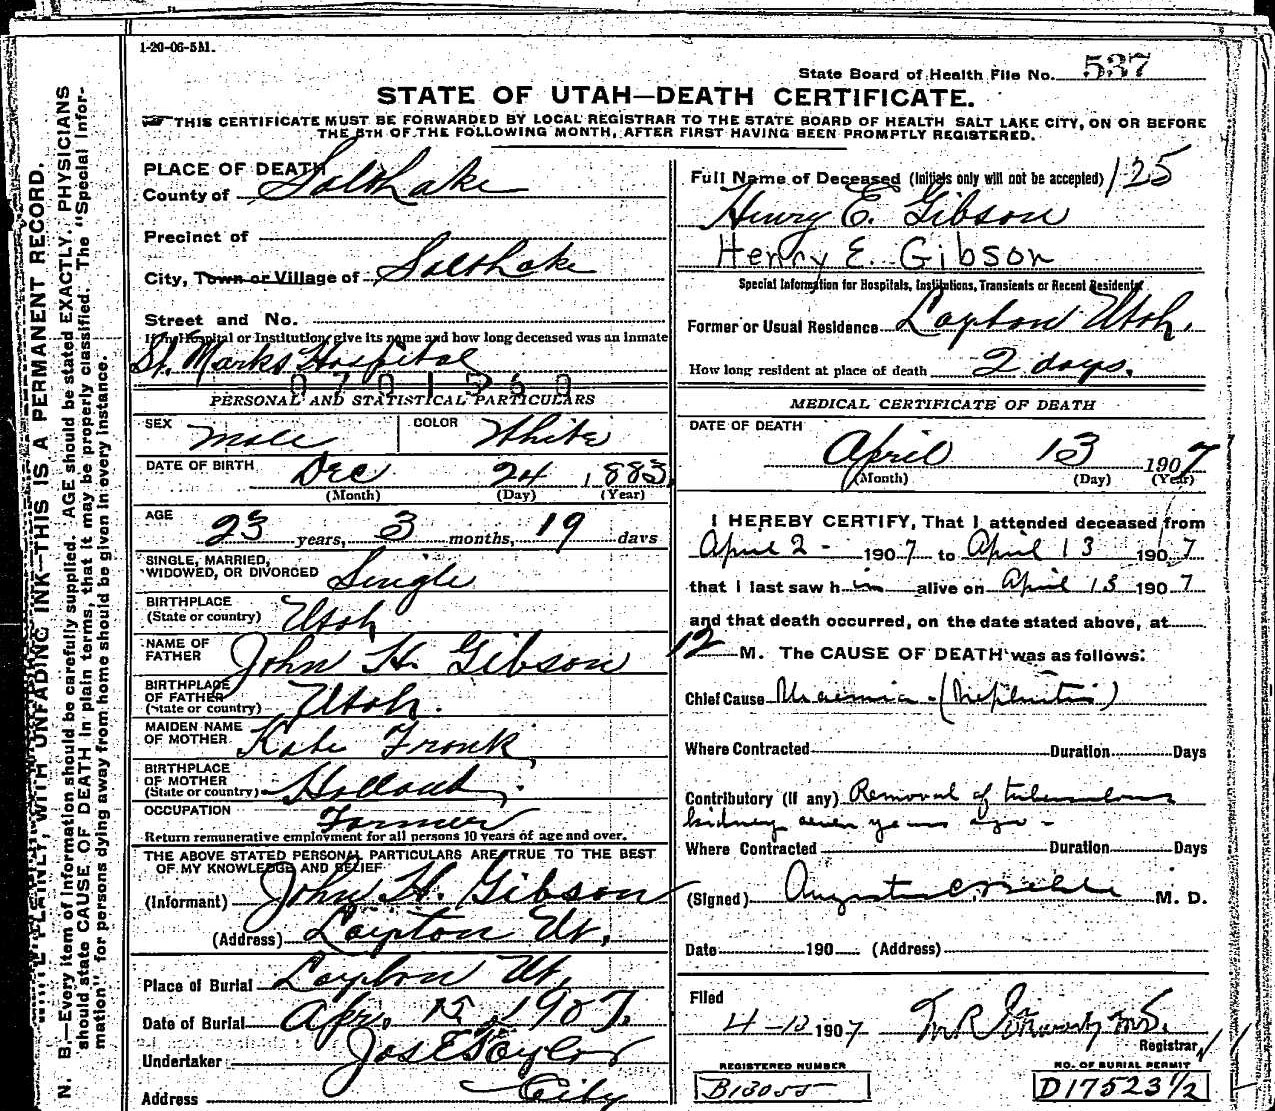 1-20-06-5M.
State Board of Health File No. 537
STATE OF UTAH—DEATH CERTIFICATE.
THIS CERTIFICATE MUST BE FORWARDED BY LOCAL REGISTRAR TO THE STATE BOARD OF HEALTH SALT LAKE CITY, ON OR BEFORE
THE 5TH OF THE FOLLOWING MONTH, AFTER FIRST HAVING BEEN PROMPTLY REGISTERED.
N. B.—Every item of information should be carefully supplied. AGE should be stated EXACTLY. PHYSICIANS
should state CAUSE OF DEATH in plain terms, that it may be properly classified. The "Special Infor-
mation" for persons dying away from home should be given in every instance.
PLAINLY, WITH UNFADING INK—THIS IS A PERMANENT RECORD.
PLACE OF DEATH
County of Salt Lake
Precinct of
City, Town or Village of Salt Lake
Street and No.
If in Hospital or Institution, give its name and how long deceased was an inmate
St. Marks Hospital
0701560
PERSONAL AND STATISTICAL PARTICULARS
SEX Male COLOR White
DATE OF BIRTH Dec 24 1883
(Month) (Day) (Year)
AGE 23 years, 3 months, 19 days
SINGLE, MARRIED,
WIDOWED, OR DIVORCED Single
BIRTHPLACE
(State or country) Utah
NAME OF
FATHER John H. Gibson
BIRTHPLACE
OF FATHER
(State or country) Utah.
MAIDEN NAME
OF MOTHER Kate Fronk
BIRTHPLACE
OF MOTHER
(State or country) Holland
OCCUPATION Farmer
Return remunerative employment for all persons 10 years of age and over.
THE ABOVE STATED PERSONAL PARTICULARS ARE TRUE TO THE BEST
OF MY KNOWLEDGE AND BELIEF
(Informant) John H. Gibson
(Address) Layton Ut.
Place of Burial Layton Ut.
Date of Burial Apr. 15, 1907.
Undertaker Jos E Taylor
Address City
Full Name of Deceased (Initials only will not be accepted) 125
Henry E. Gibson
Henry E. Gibson
Special Information for Hospitals, Institutions, Transients or Recent Residents
Former or Usual Residence Layton Utah.
How long resident at place of death 2 days.
MEDICAL CERTIFICATE OF DEATH
DATE OF DEATH
April 13 1907
(Month) (Day) (Year)
I HEREBY CERTIFY, That I attended deceased from
April 2 - 1907 to April 13 1907
that I last saw him alive on April 13 1907
and that death occurred, on the date stated above, at
12 M. The CAUSE OF DEATH was as follows:
Chief Cause Uraemia. (Nephritis)
Where Contracted Duration Days
Contributory (if any) Removal of tuberculous
kidney seven years ago -
Where Contracted Duration Days
(Signed) M. D.
Date 190 (Address)
Filed
1907
Registrar
REGISTERED NUMBER
B13055
NO. OF BURIAL PERMIT
D17523 1/2